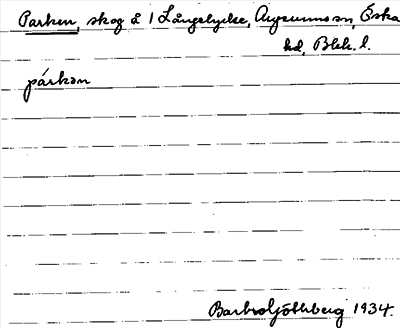 Parken, skog å 1 Långelycke, Augerums sn, Östra
hd, Blek. l.
párkən
Barbro Göthberg 1934.